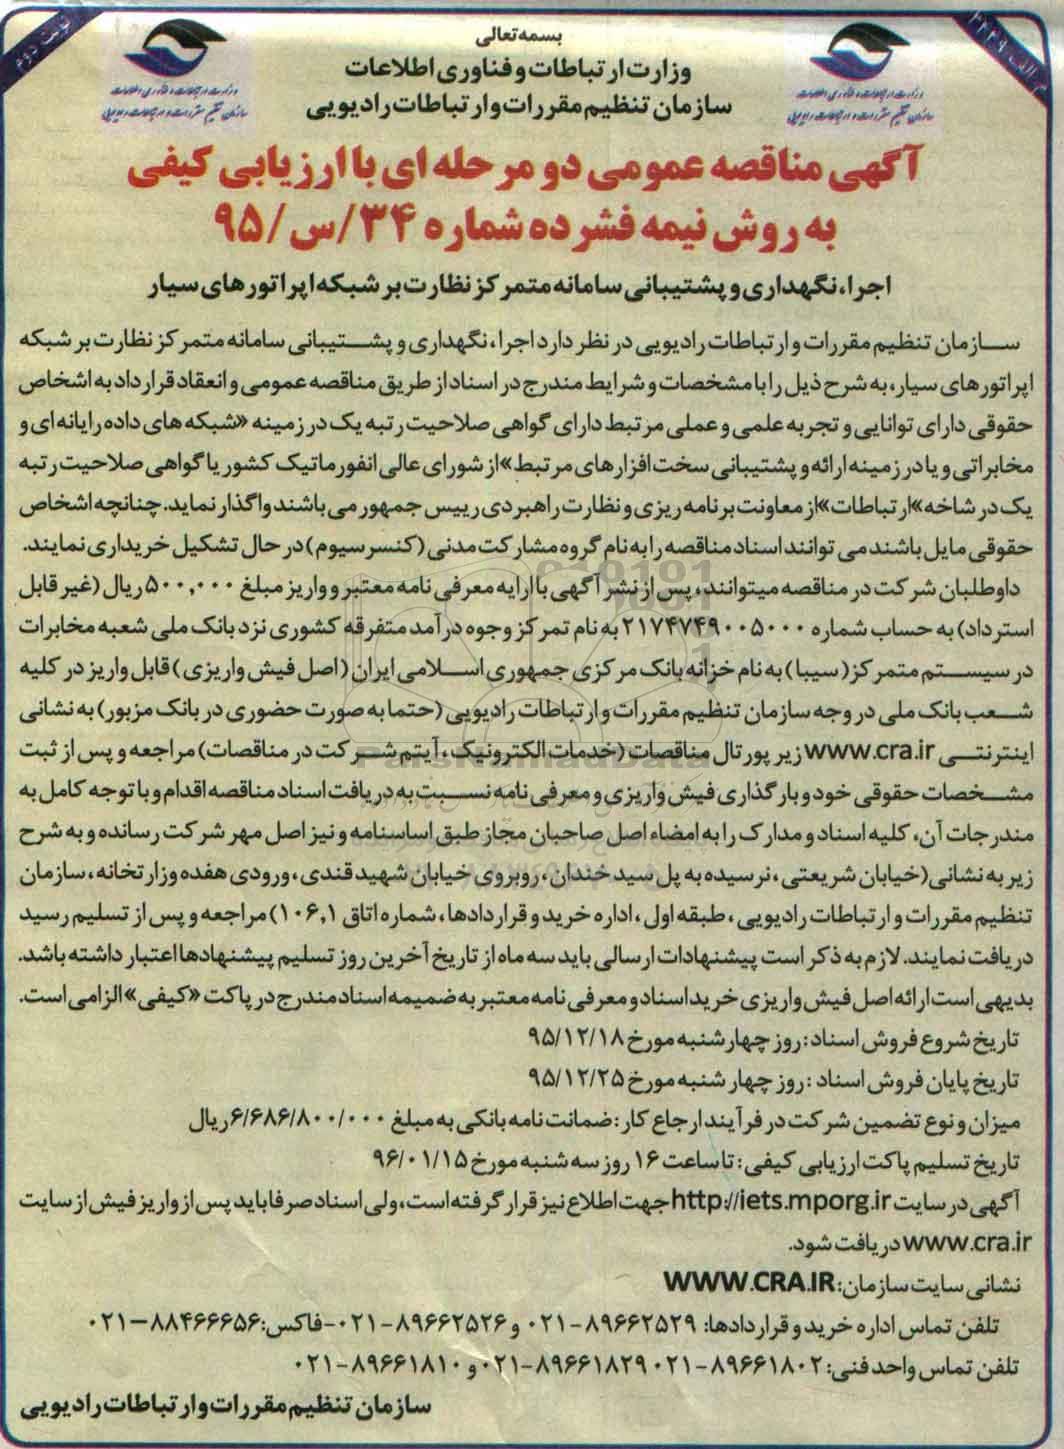 نوبت دوم
م الف ۴۴۲۹
بسمه تعالی
وزارت ارتباطات و فناوری اطلاعات
سازمان تنظیم مقررات و ارتباطات رادیویی
وزارت ارتباطات و فناوری اطلاعات
سازمان تنظیم مقررات و ارتباطات رادیویی
وزارت ارتباطات و فناوری اطلاعات
سازمان تنظیم مقررات و ارتباطات رادیویی
آگهی مناقصه عمومی دو مرحله ای با ارزیابی کیفی
به روش نیمه فشرده شماره ۳۴/س/۹۵
اجرا، نگهداری و پشتیبانی سامانه متمرکز نظارت بر شبکه اپراتورهای سیار
سازمان تنظیم مقررات و ارتباطات رادیویی در نظر دارد اجرا، نگهداری و پشتیبانی سامانه متمرکز نظارت بر شبکه
اپراتورهای سیار، به شرح ذیل را با مشخصات و شرایط مندرج در اسناد از طریق مناقصه عمومی و انعقاد قرارداد به اشخاص
حقوقی دارای توانایی و تجربه علمی و عملی مرتبط دارای گواهی صلاحیت رتبه یک در زمینه «شبکه های داده رایانه ای و
مخابراتی و یا در زمینه ارائه و پشتیبانی سخت افزارهای مرتبط» از شورای عالی انفورماتیک کشور یا گواهی صلاحیت رتبه
یک در شاخه «ارتباطات» از معاونت برنامه ریزی و نظارت راهبردی رییس جمهور می باشند واگذار نماید. چنانچه اشخاص
حقوقی مایل باشند می توانند اسناد مناقصه را به نام گروه مشارکت مدنی (کنسرسیوم) در حال تشکیل خریداری نمایند.
داوطلبان شرکت در مناقصه میتوانند، پس از نشر آگهی با ارایه معرفی نامه معتبر و واریز مبلغ ۵۰۰,۰۰۰ ریال (غیر قابل
استرداد) به حساب شماره ۲۱۷۴۷۴۹۰۰۵۰۰۰ به نام تمرکز وجوه درآمد متفرقه کشوری نزد بانک ملی شعبه مخابرات
در سیستم متمرکز (سیبا) به نام خزانه بانک مرکزی جمهوری اسلامی ایران (اصل فیش واریزی) قابل واریز در کلیه
شعب بانک ملی در وجه سازمان تنظیم مقررات و ارتباطات رادیویی (حتما به صورت حضوری در بانک مزبور) به نشانی
اینترنتی www.cra.ir زیر پورتال مناقصات (خدمات الکترونیک، آیتم شرکت در مناقصات) مراجعه و پس از ثبت
مشخصات حقوقی خود و بارگذاری فیش واریزی و معرفی نامه نسبت به دریافت اسناد مناقصه اقدام و با توجه کامل به
مندرجات آن، کلیه اسناد و مدارک را به امضاء اصل صاحبان مجاز طبق اساسنامه و نیز اصل مهر شرکت رسانده و به شرح
زیر به نشانی (خیابان شریعتی، نرسیده به پل سید خندان، روبروی خیابان شهید قندی، ورودی هفده وزارتخانه، سازمان
تنظیم مقررات و ارتباطات رادیویی، طبقه اول، اداره خرید و قراردادها، شماره اتاق ۱۰۶,۱) مراجعه و پس از تسلیم رسید
دریافت نمایند. لازم به ذکر است پیشنهادات ارسالی باید سه ماه از تاریخ آخرین روز تسلیم پیشنهادها اعتبار داشته باشد.
بدیهی است ارائه اصل فیش واریزی خرید اسناد و معرفی نامه معتبر به ضمیمه اسناد مندرج در پاکت «کیفی» الزامی است.
تاریخ شروع فروش اسناد: روز چهارشنبه مورخ ۹۵/۱۲/۱۸
تاریخ پایان فروش اسناد: روز چهار شنبه مورخ ۹۵/۱۲/۲۵
میزان و نوع تضمین شرکت در فرآیند ارجاع کار: ضمانت نامه بانکی به مبلغ ۶/۶۸۶/۸۰۰/۰۰۰ ریال
تاریخ تسلیم پاکت ارزیابی کیفی: تا ساعت ۱۶ روز سه شنبه مورخ ۹۶/۰۱/۱۵
آگهی در سایت http://iets.mporg.ir جهت اطلاع نیز قرار گرفته است، ولی اسناد صرفا باید پس از واریز فیش از سایت
www.cra.ir دریافت شود.
نشانی سایت سازمان: WWW.CRA.IR
تلفن تماس اداره خرید و قراردادها: ۸۹۶۶۲۵۲۹-۰۲۱ و ۸۹۶۶۲۵۲۶-۰۲۱-فاکس: ۸۸۴۶۶۶۵۶-۰۲۱
تلفن تماس واحد فنی: ۸۹۶۶۱۸۰۲-۰۲۱ ۸۹۶۶۱۸۲۹-۰۲۱ و ۸۹۶۶۱۸۱۰-۰۲۱
سازمان تنظیم مقررات و ارتباطات رادیویی